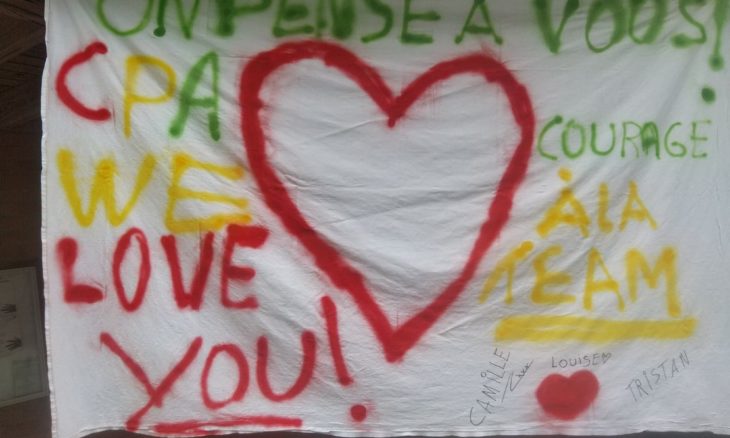 ON PENSE À VOUS!
CPA
WE
LOVE
YOU!
COURAGE
À LA
TEAM
CAMILLE
LOUISE
TRISTAN